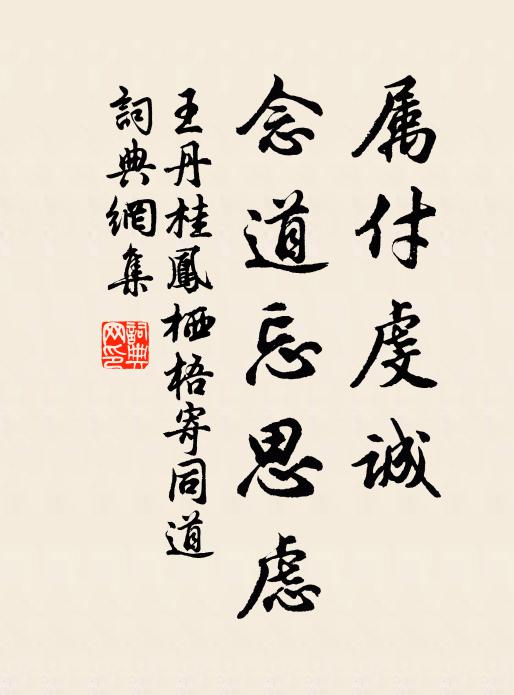 属付虔诚
念道忘思虑
王丹桂鳳栖梧寄同道
詞典網集
詞典
网印